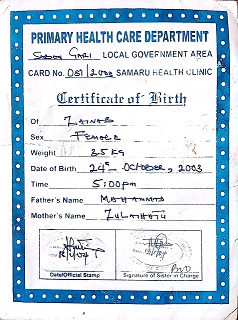 PRIMARY HEALTH CARE DEPARTMENT
Sabon Gari LOCAL GOVERNMENT AREA
CARD No. 051/2003 SAMARU HEALTH CLINIC
Certificate of Birth
Of ZAINAB
Sex FEMALE
Weight 3.5KG
Date of Birth 24th OCTOBER, 2003
Time 5:00pm
Father's Name MAHAMMAD
Mother's Name ZULAIHATU
Date/Official Stamp
Signature of Sister in Charge